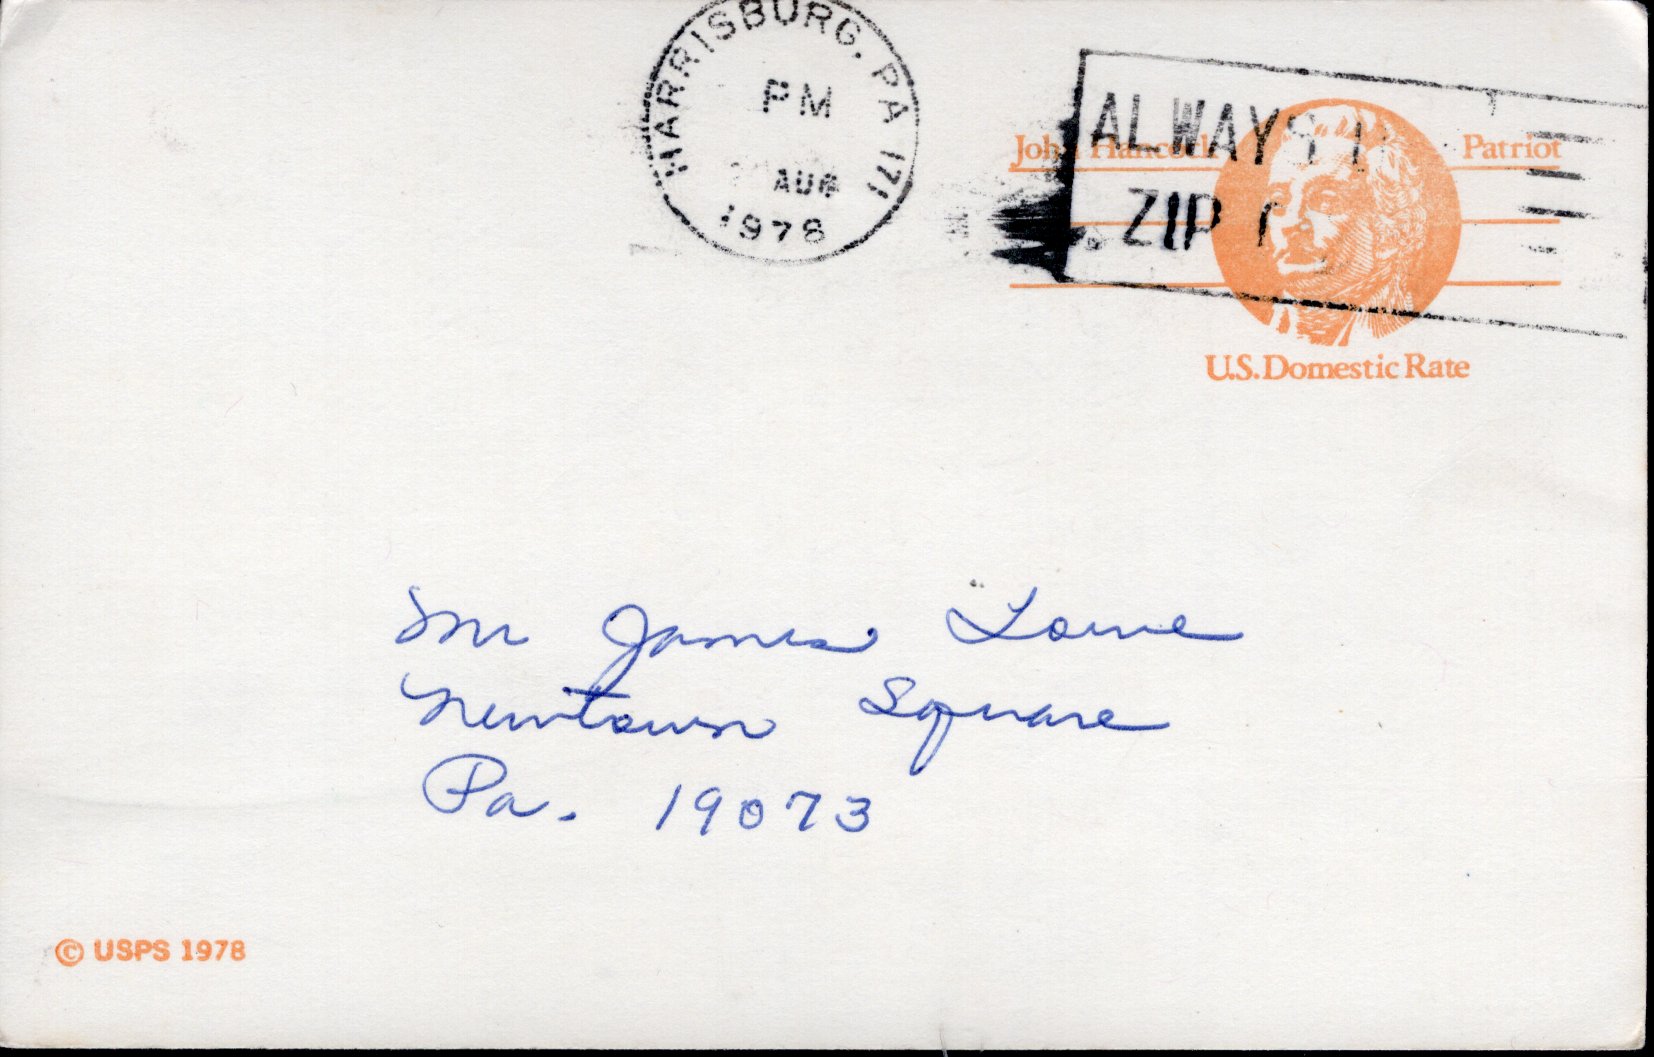 HARRISBURG, PA 171
PM
AUG
1978
ALWAYS
ZIP
John Hancock
Patriot
U.S. Domestic Rate
Mr James Lowe
Newtown Square
Pa. 19073
© USPS 1978